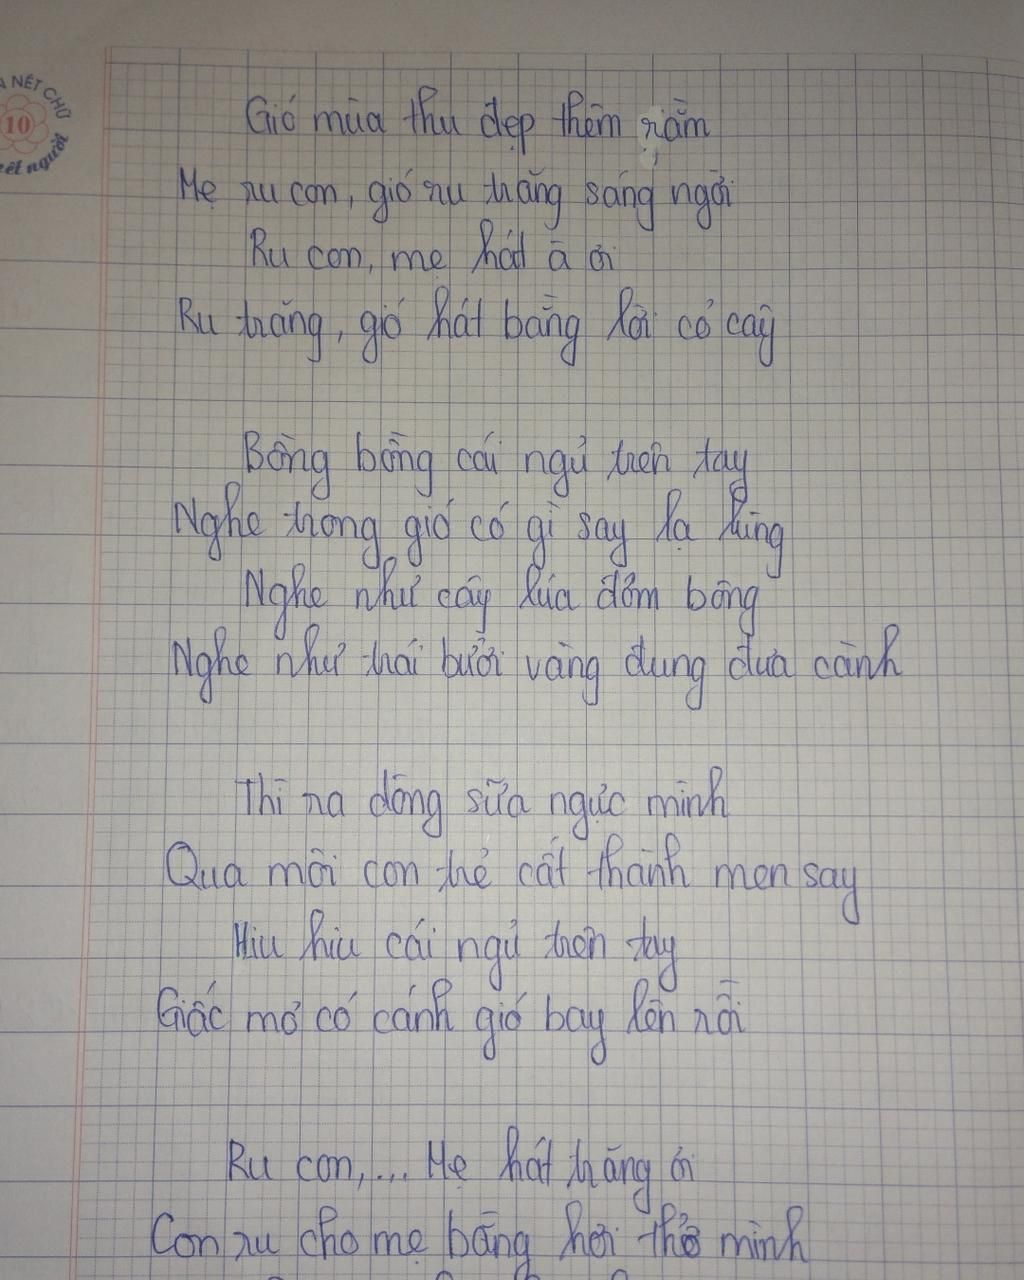 NÉT CHỮ
10
nết người
Gió mùa thu đẹp thêm rằm
Mẹ ru con, gió ru trăng sáng ngời
Ru con, mẹ hát à ơi
Ru trăng, gió hát bằng lời cỏ cây
Bồng bồng cái ngủ trên tay
Nghe trong gió có gì say lạ lùng
Nghe như cây lúa đơm bông
Nghe như trái bưởi vàng đung đưa cành
Thì ra dòng sữa ngực mình
Qua môi con trẻ cất thành men say
Hiu hiu cái ngủ trên tay
Giấc mơ có cánh gió bay lên rồi
Ru con,... Mẹ hát trăng ơi
Con ru cho mẹ bằng hơi thở mình